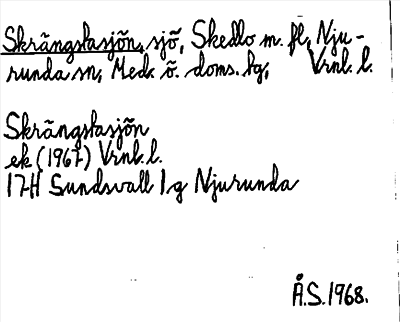 Skrängstasjön, sjö, Skedlo m. fl., Nju-
runda sn, Med. ö. doms. tg, Vrnl. l.
Skrängstasjön
ek (1967) Vrnl. l.
17H Sundsvall 1g Njurunda
Å.S. 1968.